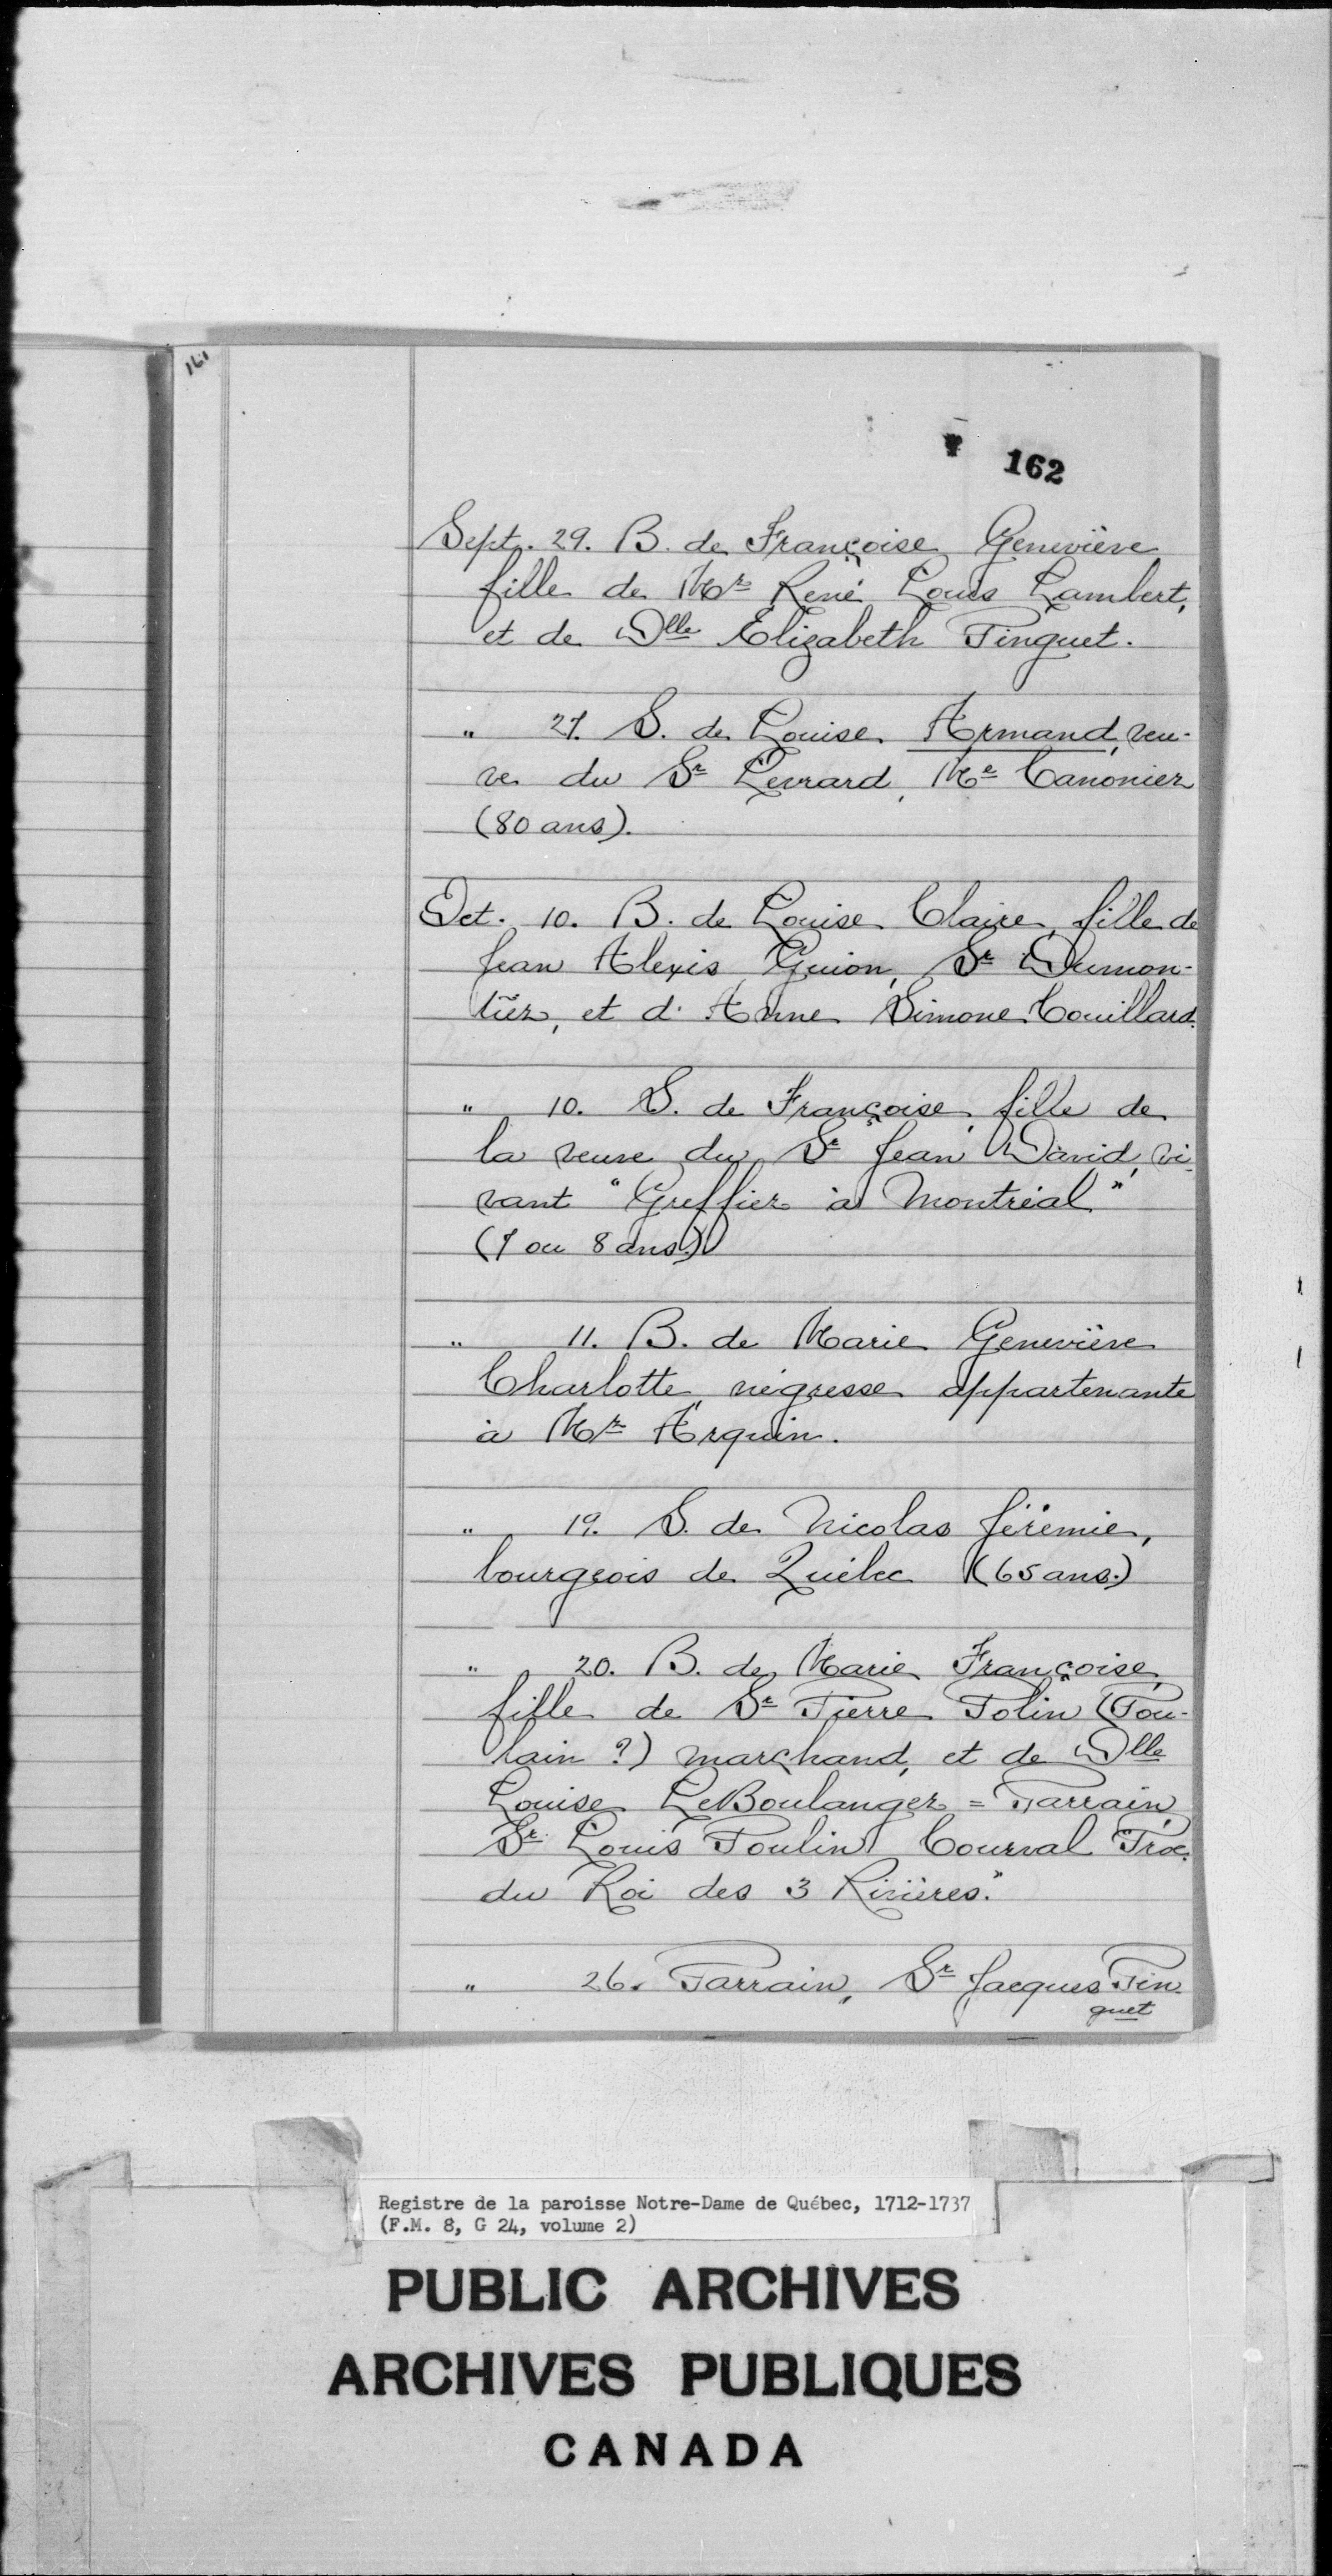 161
162
Sept. 29. B. de Françoise Geneviève
fille de Mr René Louis Lambert,
et de Dlle Elizabeth Pinguet.
" 27. S. de Louise Armand, veu-
ve du Sr Levrard, Me Canonier
(80 ans).
Oct. 10. B. de Louise Claire, fille de
Jean Alexis Guion, Sr Dumon-
tier, et d'Anne Simone Couillard.
" 10. S. de Françoise, fille de
la veuve du Sr Jean David, vi-
vant "Greffier à Montréal"
(7 ou 8 ans.)
" 11. B. de Marie Geneviève
Charlotte, négresse appartenante
à Mr Arguin.
" 19. S. de Nicolas Jérémie,
bourgeois de Québec (65 ans.)
" 20. B. de Marie Françoise,
fille de Sr Pierre Polin (Pou-
lain ?) marchand, et de Dlle
Louise LeBoulanger = Parrain,
Sr Louis Poulin Courval "Proc.
du Roi des 3 Rivières."
" 26. Parrain, Sr Jacques Pin-
guet
Registre de la paroisse Notre-Dame de Québec, 1712-1737
(F.M. 8, G 24, volume 2)
PUBLIC ARCHIVES
ARCHIVES PUBLIQUES
CANADA